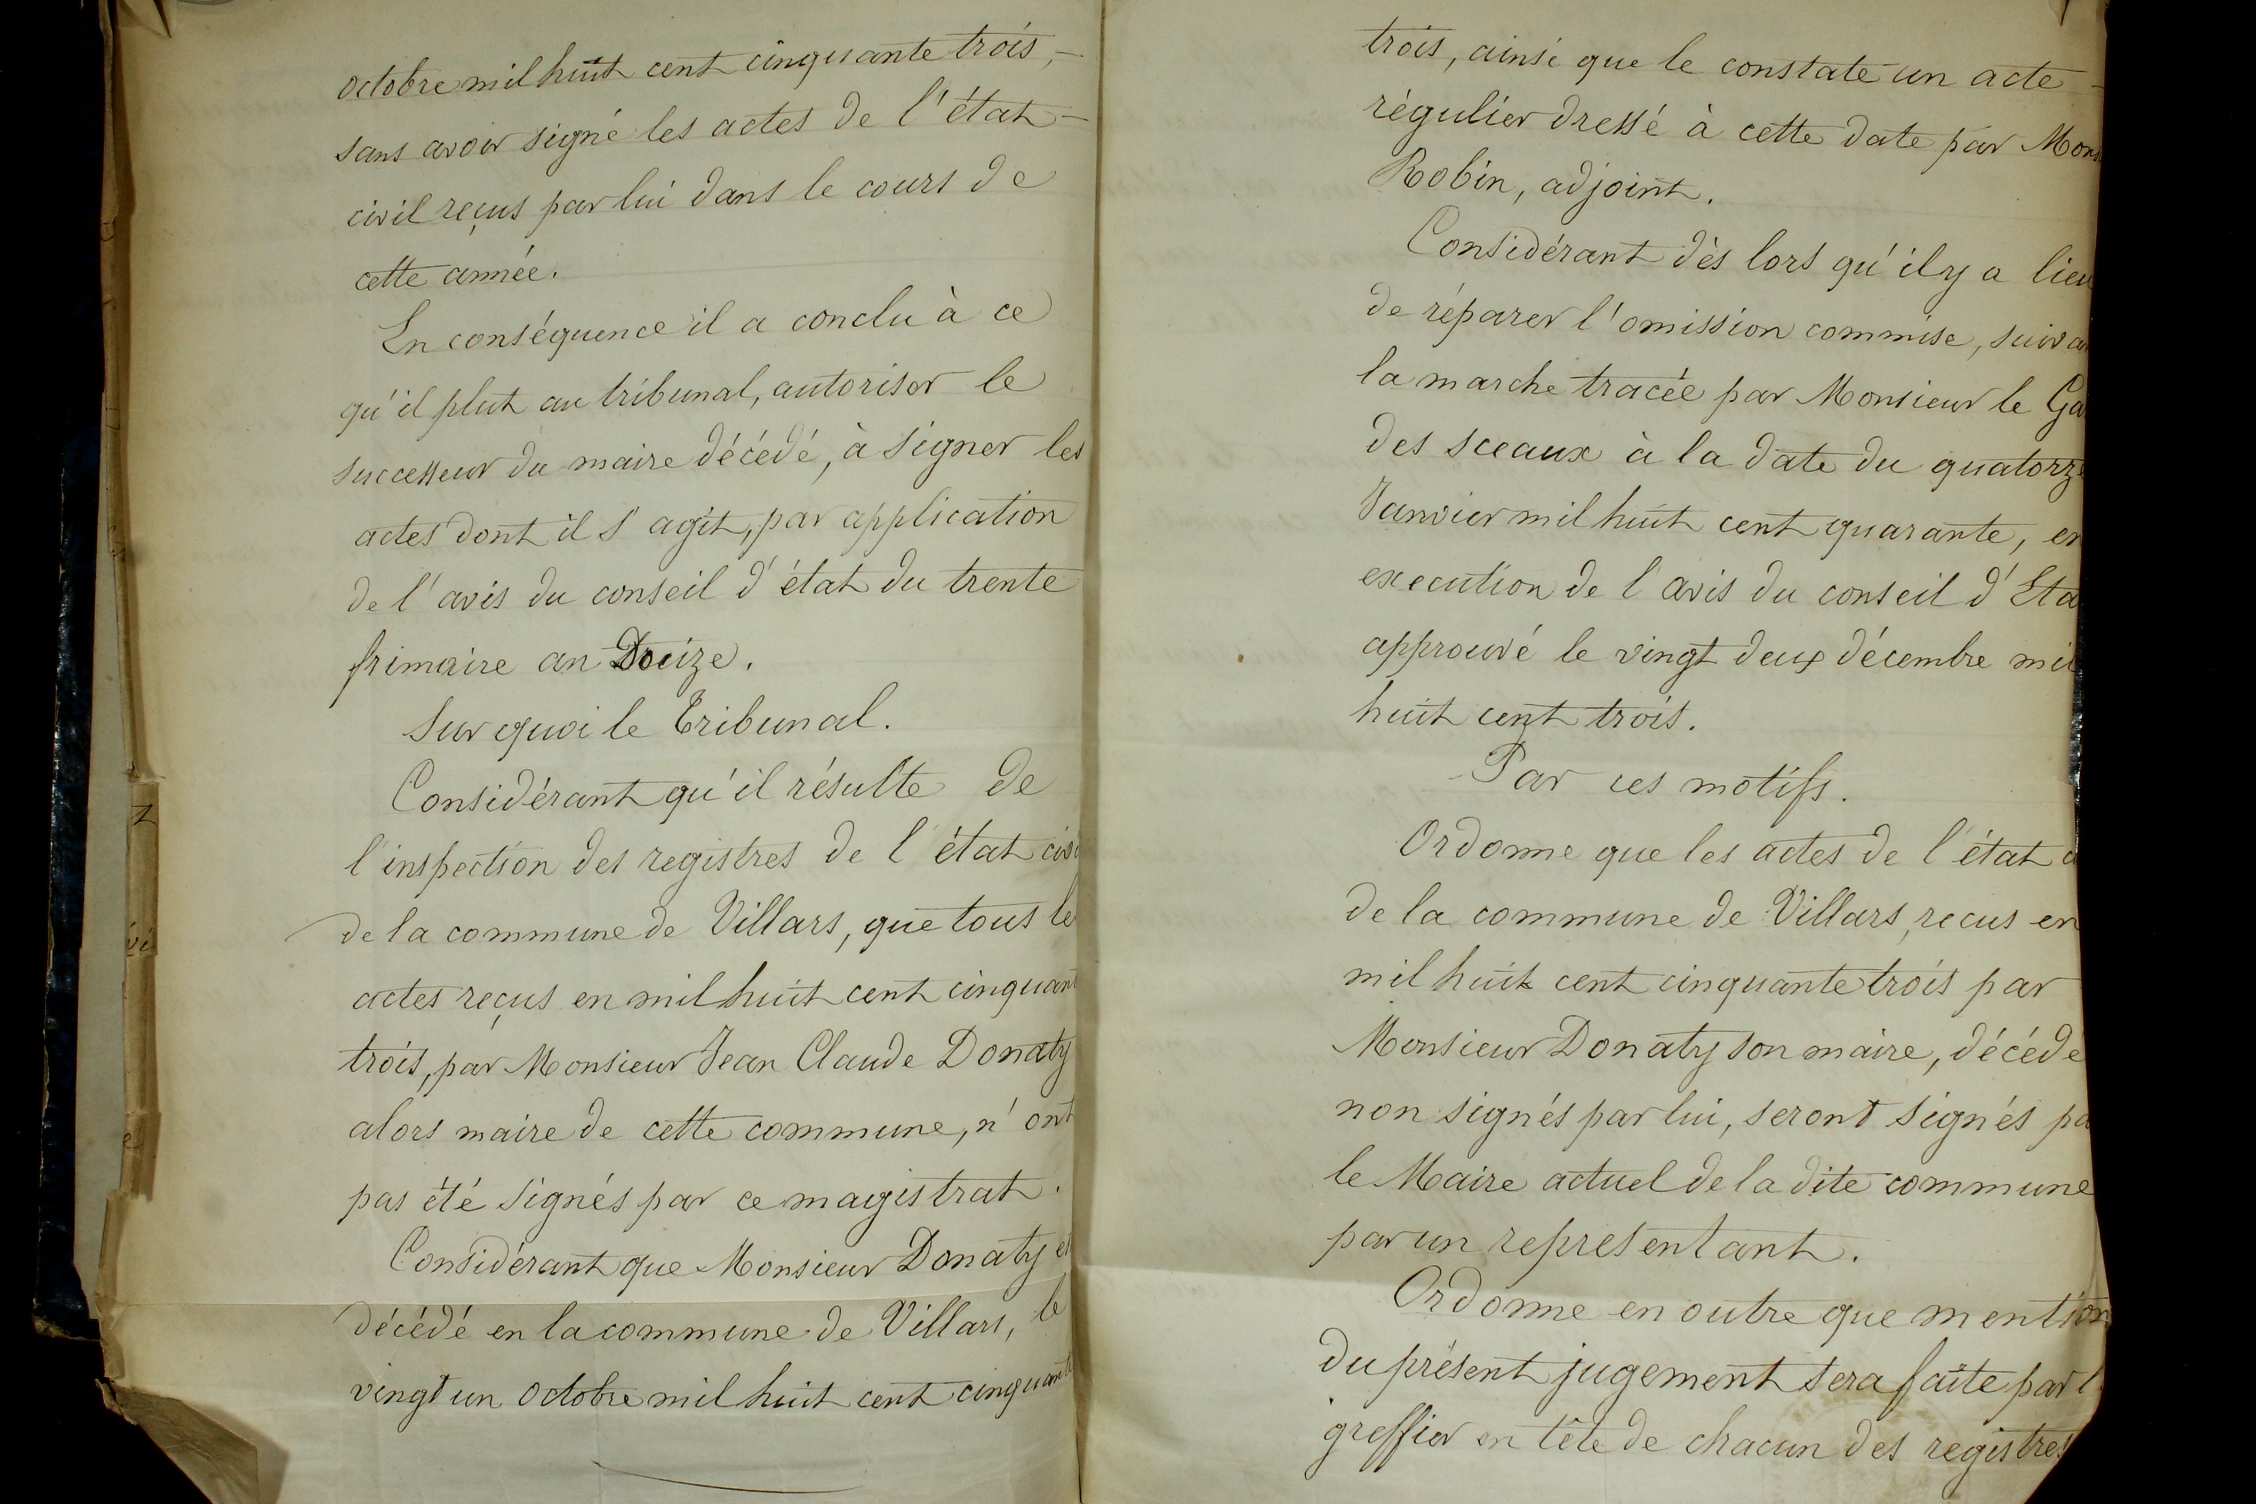 octobre mil huit cent cinquante trois,
sans avoir signé les actes de l'état
civil reçus par lui dans le cours de
cette année.
En conséquence il a conclu à ce
qu'il plut au tribunal, autoriser le
successeur du maire décédé, à signer les
actes dont il s'agit, par application
de l'avis du conseil d'état du trente
frimaire an Douze.
Sur quoi le Tribunal.
Considérant qu'il résulte de
l'inspection des registres de l'état civi
de la commune de Villars, que tous le
actes reçus en mil huit cent cinquant
trois, par Monsieur Jean Claude Donaty
alors maire de cette commune, n'ont
pas été signés par ce magistrat.
Considérant que Monsieur Donaty es
décédé en la commune de Villars, le
vingt un octobre mil huit cent cinquante
trois, ainsi que le constate un acte
régulier dressé à cette date par Mons
Robin, adjoint.
Considérant dès lors qu'il y a lieu
de réparer l'omission commise, suivan
la marche tracée par Monsieur le Ga
des sceaux à la date du quatorze
Janvier mil huit cent quarante, en
execution de l'avis du conseil d'Eta
approuvé le vingt deux décembre mil
huit cent trois.
Par ces motifs.
Ordonne que les actes de l'état c
de la commune de Villars, recus en
mil huit cent cinquante trois par
Monsieur Donaty son maire, décédé
non signés par lui, seront signés pa
le Maire actuel de la dite commune
par un representant.
Ordonne en outre que mention
du présent jugement sera faite par l
greffier en tête de chacun des registres